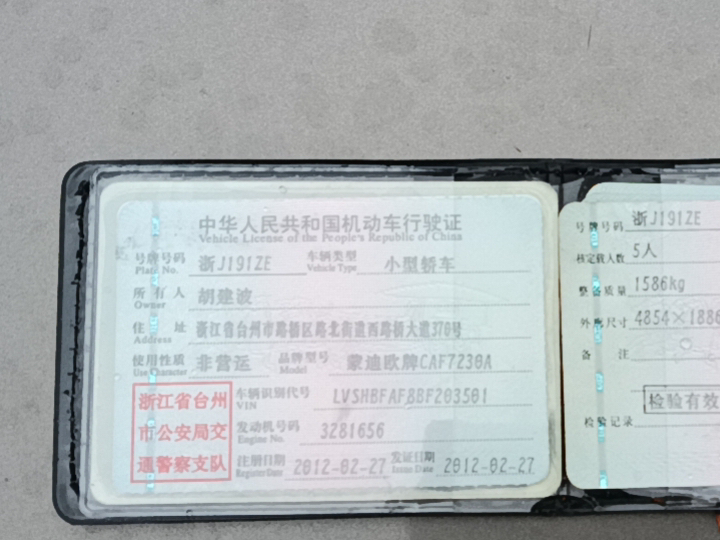 中华人民共和国机动车行驶证
Vehicle License of the People's Republic of China
号牌号码 浙J191ZE 车辆类型 小型轿车
Plate No. Vehicle Type
所有人 胡建波
Owner
住址 浙江省台州市路桥区路北街道西路桥大道370号
Address
使用性质 非营运 品牌型号 蒙迪欧牌CAF7230A
Use Character Model
浙江省台州
市公安局交
通警察支队
车辆识别代号 LVSHBFAF8BF203501
VIN
发动机号码 3281656
Engine No.
注册日期 2012-02-27 发证日期 2012-02-27
Register Date Issue Date
号牌号码 浙J191ZE
核定载人数 5人
整备质量 1586kg
外廓尺寸 4854×1886
备注
检验有效
检验记录